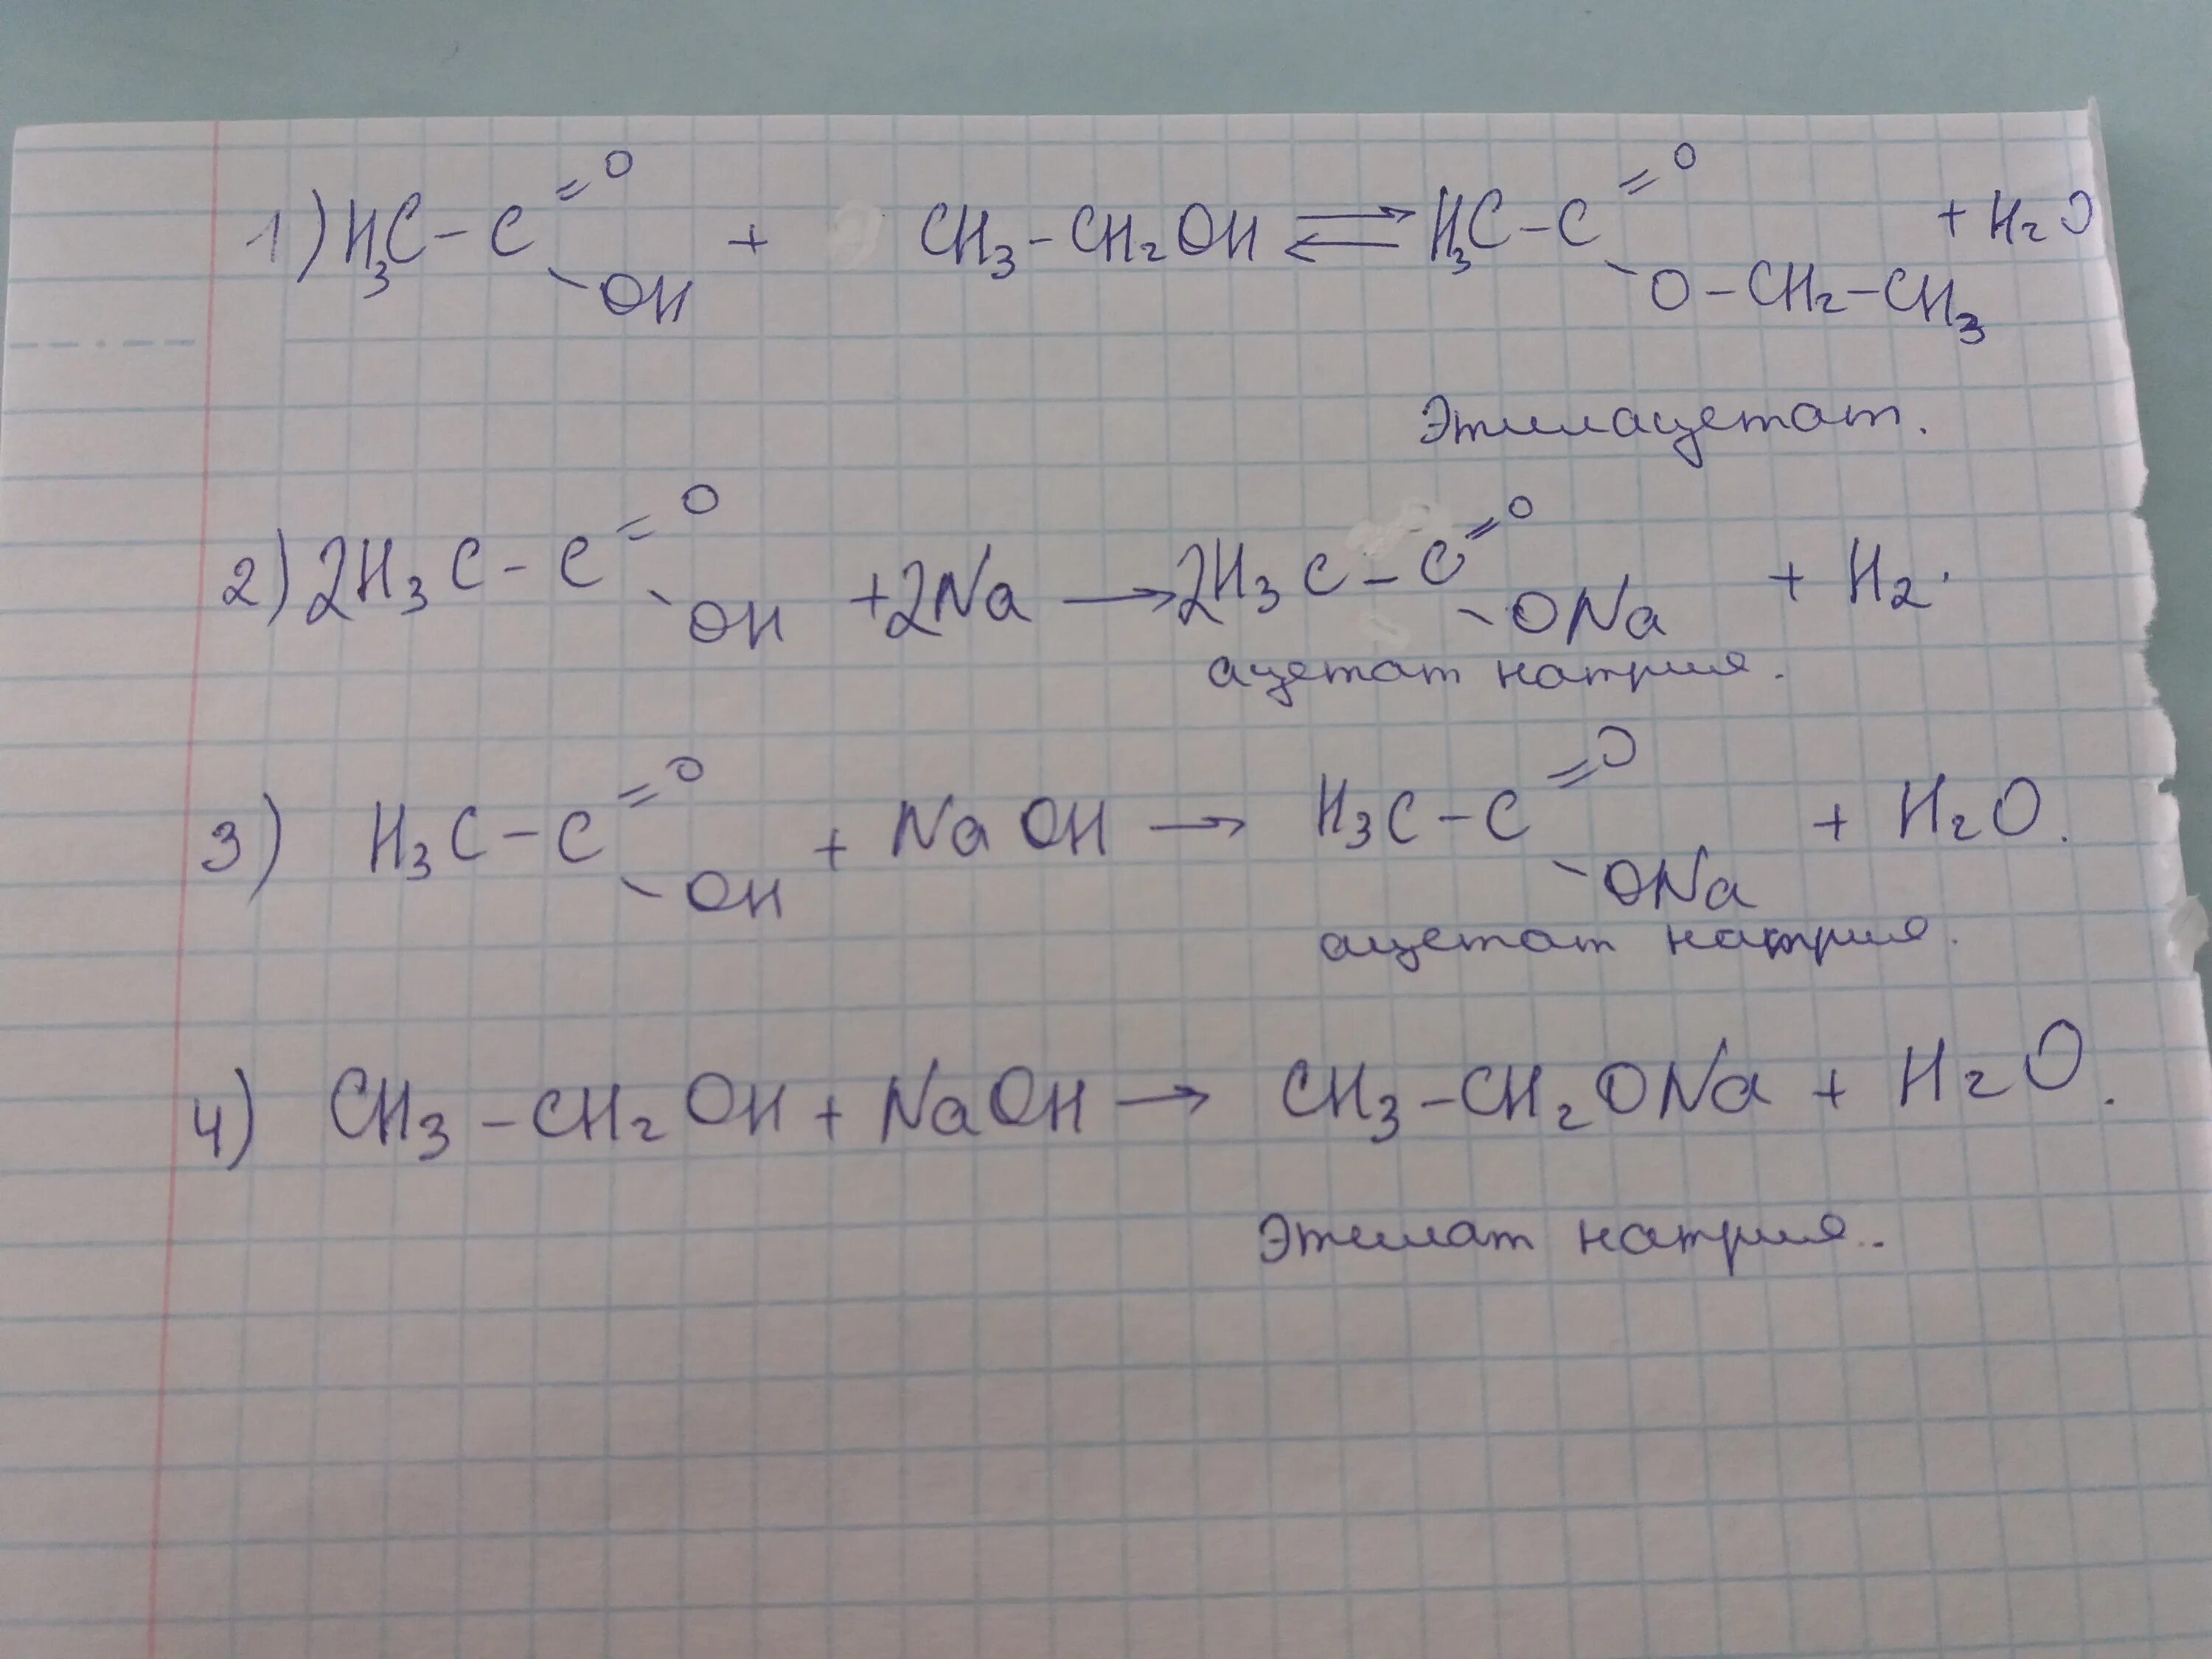 1) H₃C-C=O-OH + CH₃-CH₂OH ⇌ H₃C-C=O-O-CH₂-CH₃ + H₂O
Этилацетат.
2) 2H₃C-C=O-OH +2Na → 2H₃C-C=O-ONa + H₂.
ацетат натрия.
3) H₃C-C=O-OH + NaOH → H₃C-C=O-ONa + H₂O.
ацетат натрия.
4) CH₃-CH₂OH + NaOH → CH₃-CH₂ONa + H₂O.
Этилат натрия.